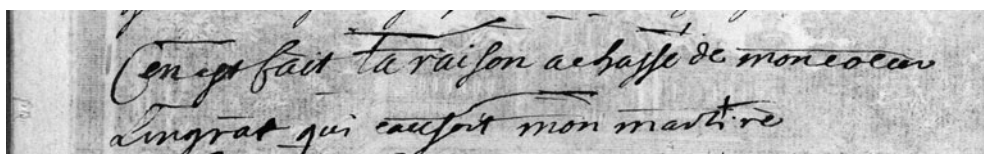 Cen est fait la raison achasse de moncoeur
Lingrat qui causoit mon martire